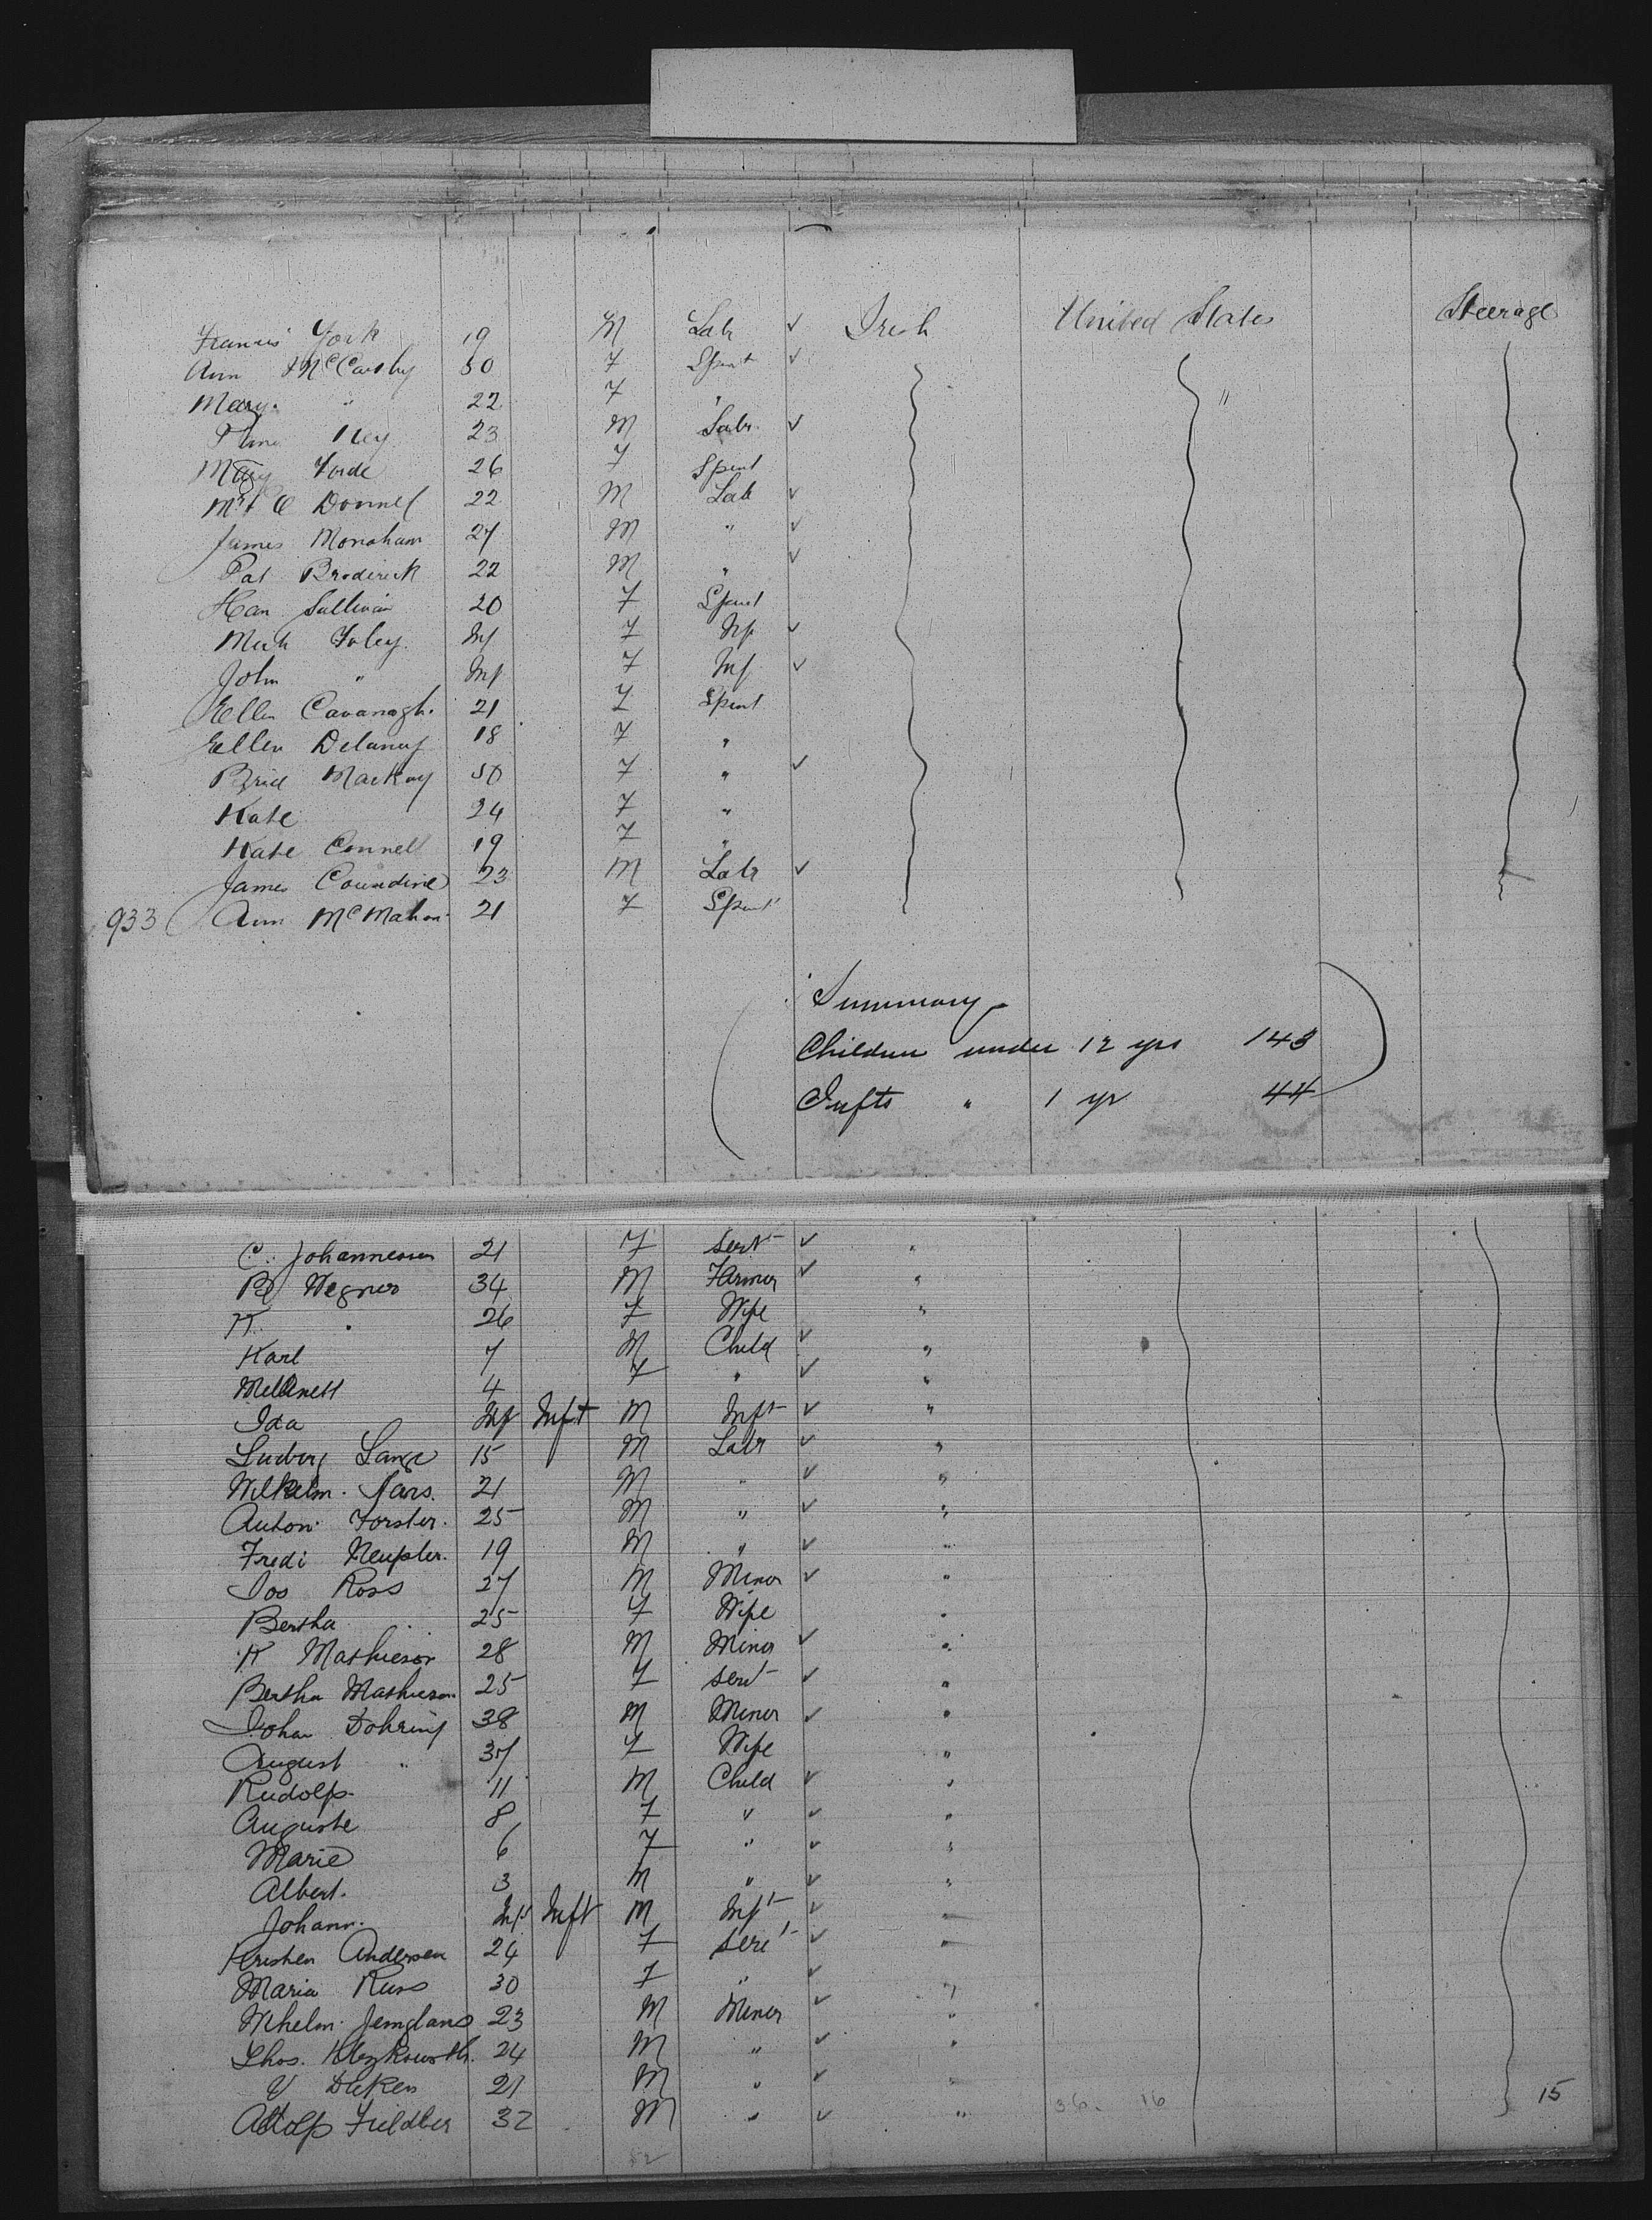 Francis York 19 M Labr ✓ Irish United States Steerage
Ann McCarthy 50 F Spinst ✓
Mary " 22 F " "
Ney 23 M Labr ✓
Mary Forde 26 F Spinst
O Donnel 22 M Lab ✓
James Monaham 27 M " ✓
Pat Broderick 22 M " ✓
Han Sullivan 20 F Spinst
Mich Foley Inf F Inf ✓
John " Inf F Inf ✓
Ellen Cavanagh 21 F Spinst
Ellen Delaney 18 F "
Brid Mackay 50 F " ✓
Kate 24 F "
Kate Connell 19 F "
James 23 M Labr ✓
933 Ann McMahon 21 F Spinst
Summary
Children under 12 yrs 143
Infts " 1 yr 44
C. Johannesen 21 F Servt ✓ "
Wegner 34 M Farmer ✓ "
K. " 26 F Wife "
Karl 7 M Child ✓ "
4 F " ✓ "
Ida Inf Inft M Inft ✓ "
Ludwig Lange 15 M Labr ✓ "
Wilhelm 21 M " ✓ "
Anton Forster 25 M " ✓ "
Fredi 19 M " ✓ "
Jos Ross 27 M Miner ✓ "
Bertha 25 F Wife "
K Mathieson 28 M Miner ✓ "
Bertha Mathieson 25 F Servt ✓ "
Johan Dohring 38 M Miner ✓ "
August " 37 F Wife "
Rudolf 11 M Child ✓ "
Auguste 8 F " ✓ "
Marie 6 F " ✓ "
Albert. 3 M " ✓ "
Johann. Inft Inft M Inft ✓ "
Andersen 24 F Servt ✓ "
Maria Russ 30 F " ✓ "
23 M Miner ✓ "
24 M " ✓ "
21 M " ✓ "
Adolf 32 M " ✓ " 36. 16 15